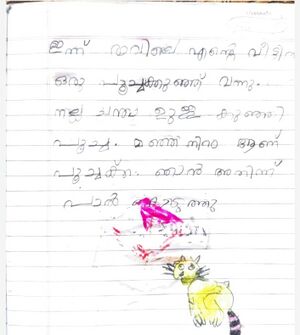 ഇന്ന് രാവിലെ എന്റെ വീട്ടിൽ
ഒരു പൂച്ചക്കുഞ്ഞ് വന്നു.
നല്ല ചന്തം ഉള്ള കുഞ്ഞി
പൂച്ച. മഞ്ഞനിറം ആണ്
പൂച്ചക്ക്. ഞാൻ അതിന്
പാൽ കൊടുത്തു